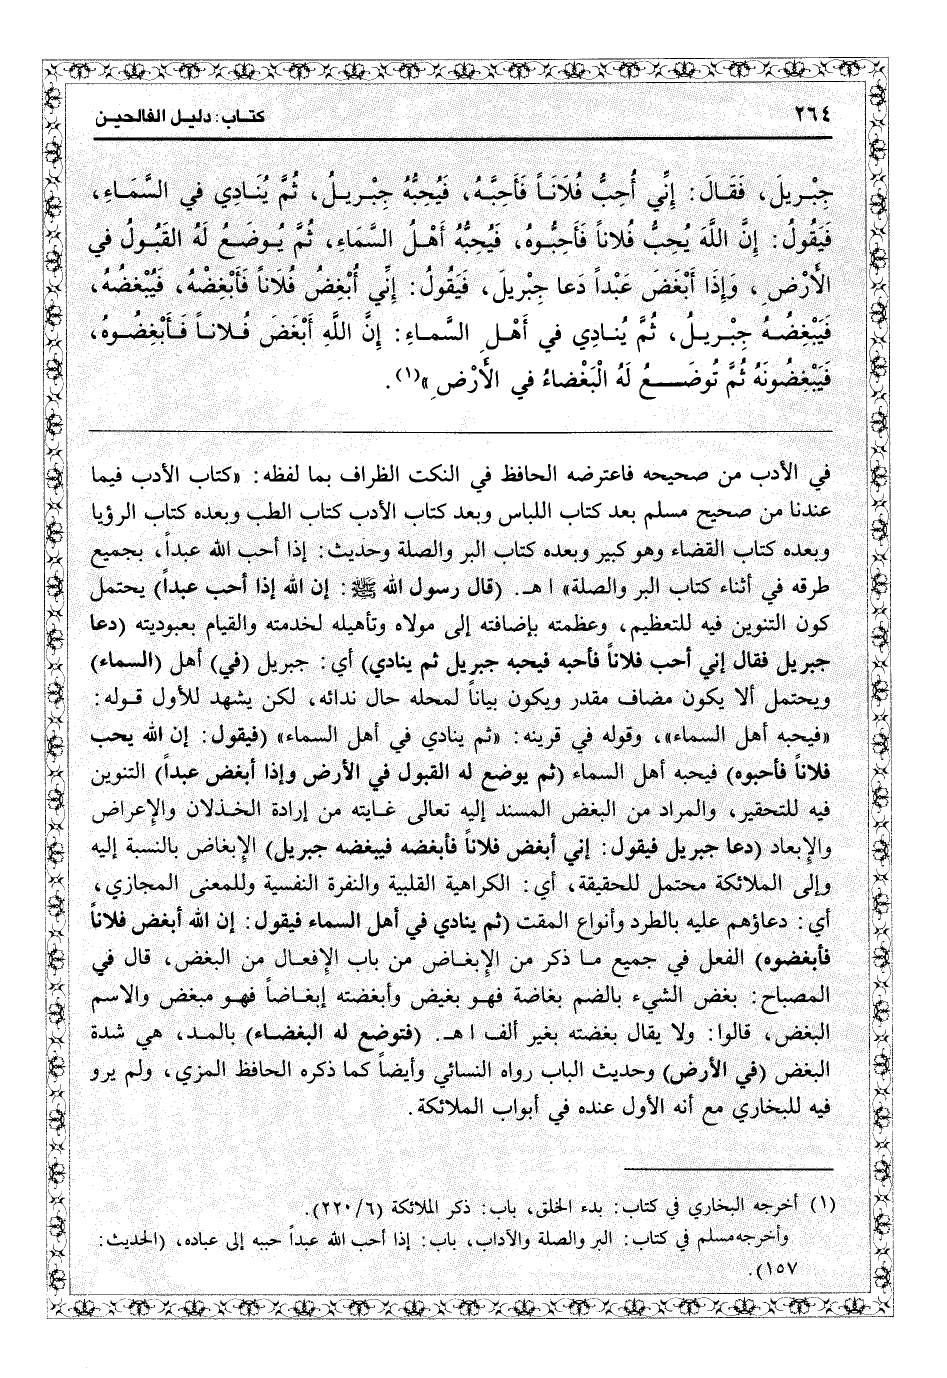 ٢٦٤ كتاب: دليل الفالحين
جِبْرِيلَ، فَقَالَ: إِنِّي أُحِبُّ فُلَانَاً فَأَحِبَّهُ، فَيُحِبُّهُ جِبْرِيلُ، ثُمَّ يُنَادِي فِي السَّمَاءِ،
فَيَقُولُ: إِنَّ اللَّهَ يُحِبُّ فُلاناً فَأَحِبُّوهُ، فَيُحِبُّهُ أَهْلُ السَّمَاءِ، ثُمَّ يُوضَعُ لَهُ القَبُولُ فِي
الأَرْضِ، وَإِذَا أَبْغَضَ عَبْداً دَعا جِبْرِيلَ، فَيَقُولُ: إِنِّي أُبْغِضُ فُلَاناً فَأَبْغِضْهُ، فَيُبْغِضُهُ،
فَيَبْغِضُهُ جِبْرِيلُ، ثُمَّ يُنَادِي فِي أَهْلِ السَّمَاءِ: إِنَّ اللَّهِ أَبْغَضَ فُلاناً فَأَبْغِضُوهُ،
فَيَبْغِضُونَهُ ثُمَّ تُوضَعُ لَهُ الْبَغْضاءُ فِي الأَرْضِ»(١).
في الأدب من صحيحه فاعترضه الحافظ في النكت الظراف بما لفظه: «كتاب الأدب فيما
عندنا من صحيح مسلم بعد كتاب اللباس وبعد كتاب الأدب كتاب الطب وبعده كتاب الرؤيا
وبعده كتاب القضاء وهو كبير وبعده كتاب البر والصلة وحديث: إذا أحب الله عبداً، بجميع
طرقه في أثناء كتاب البر والصلة» اهـ. (قال رسول الله ﷺ: إن الله إذا أحب عبدا) يحتمل
كون التنوين فيه للتعظيم، وعظمته بإضافته إلى مولاه وتأهيله لخدمته والقيام بعبوديته (دعا
جبريل فقال إني أحب فلاناً فأحبه فيحبه جبريل ثم ينادي) أي: جبريل (في) أهل (السماء)
ويحتمل ألا يكون مضاف مقدر ويكون بياناً لمحله حال ندائه، لكن يشهد للأول قوله:
«فيحبه أهل السماء»، وقوله في قرينه: «ثم ينادي في أهل السماء» (فيقول: إن الله يحب
فلاناً فأحبوه) فيحبه أهل السماء (ثم يوضع له القبول في الأرض وإذا أبغض عبداً) التنوين
فيه للتحقير، والمراد من البغض المسند إليه تعالى غايته من إرادة الخذلان والإعراض
والإبعاد (دعا جبريل فيقول: إني أبغض فلاناً فأبغضه فيبغضه جبريل) الإبغاض بالنسبة إليه
وإلى الملائكة محتمل للحقيقة، أي: الكراهية القلبية والنفرة النفسية وللمعنى المجازي،
أي: دعاؤهم عليه بالطرد وأنواع المقت (ثم ينادي في أهل السماء فيقول: إن الله أبغض فلاناً
فأبغضوه) الفعل في جميع ما ذكر من الإبغاض من باب الإفعال من البغض، قال في
المصباح: بغض الشيء بالضم بغاضة فهو بغيض وأبغضته إبغاضاً فهو مبغض والاسم
البغض، قالوا: ولا يقال بغضته بغير ألف اهـ. (فتوضع له البغضاء) بالمد، هي شدة
البغض (في الأرض) وحديث الباب رواه النسائي وأيضاً كما ذكره الحافظ المزي، ولم يرو
فيه للبخاري مع أنه الأول عنده في أبواب الملائكة.
(١) أخرجه البخاري في كتاب: بدء الخلق، باب: ذكر الملائكة (٢٢٠/٦).
وأخرجه مسلم في كتاب: البر والصلة والآداب، باب: إذا أحب الله عبداً حببه إلى عباده، (الحديث:
١٥٧).